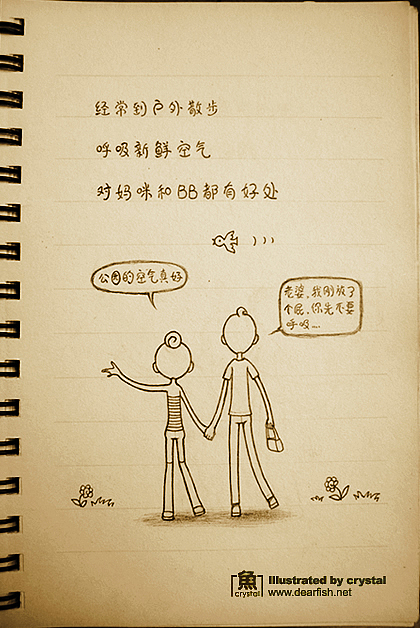 经常到户外散步
呼吸新鲜空气
对妈咪和BB都有好处
公园的空气真好
老婆,我刚放了
个屁,你先不要
呼吸...
魚
crystal
Illustrated by crystal
www.dearfish.net